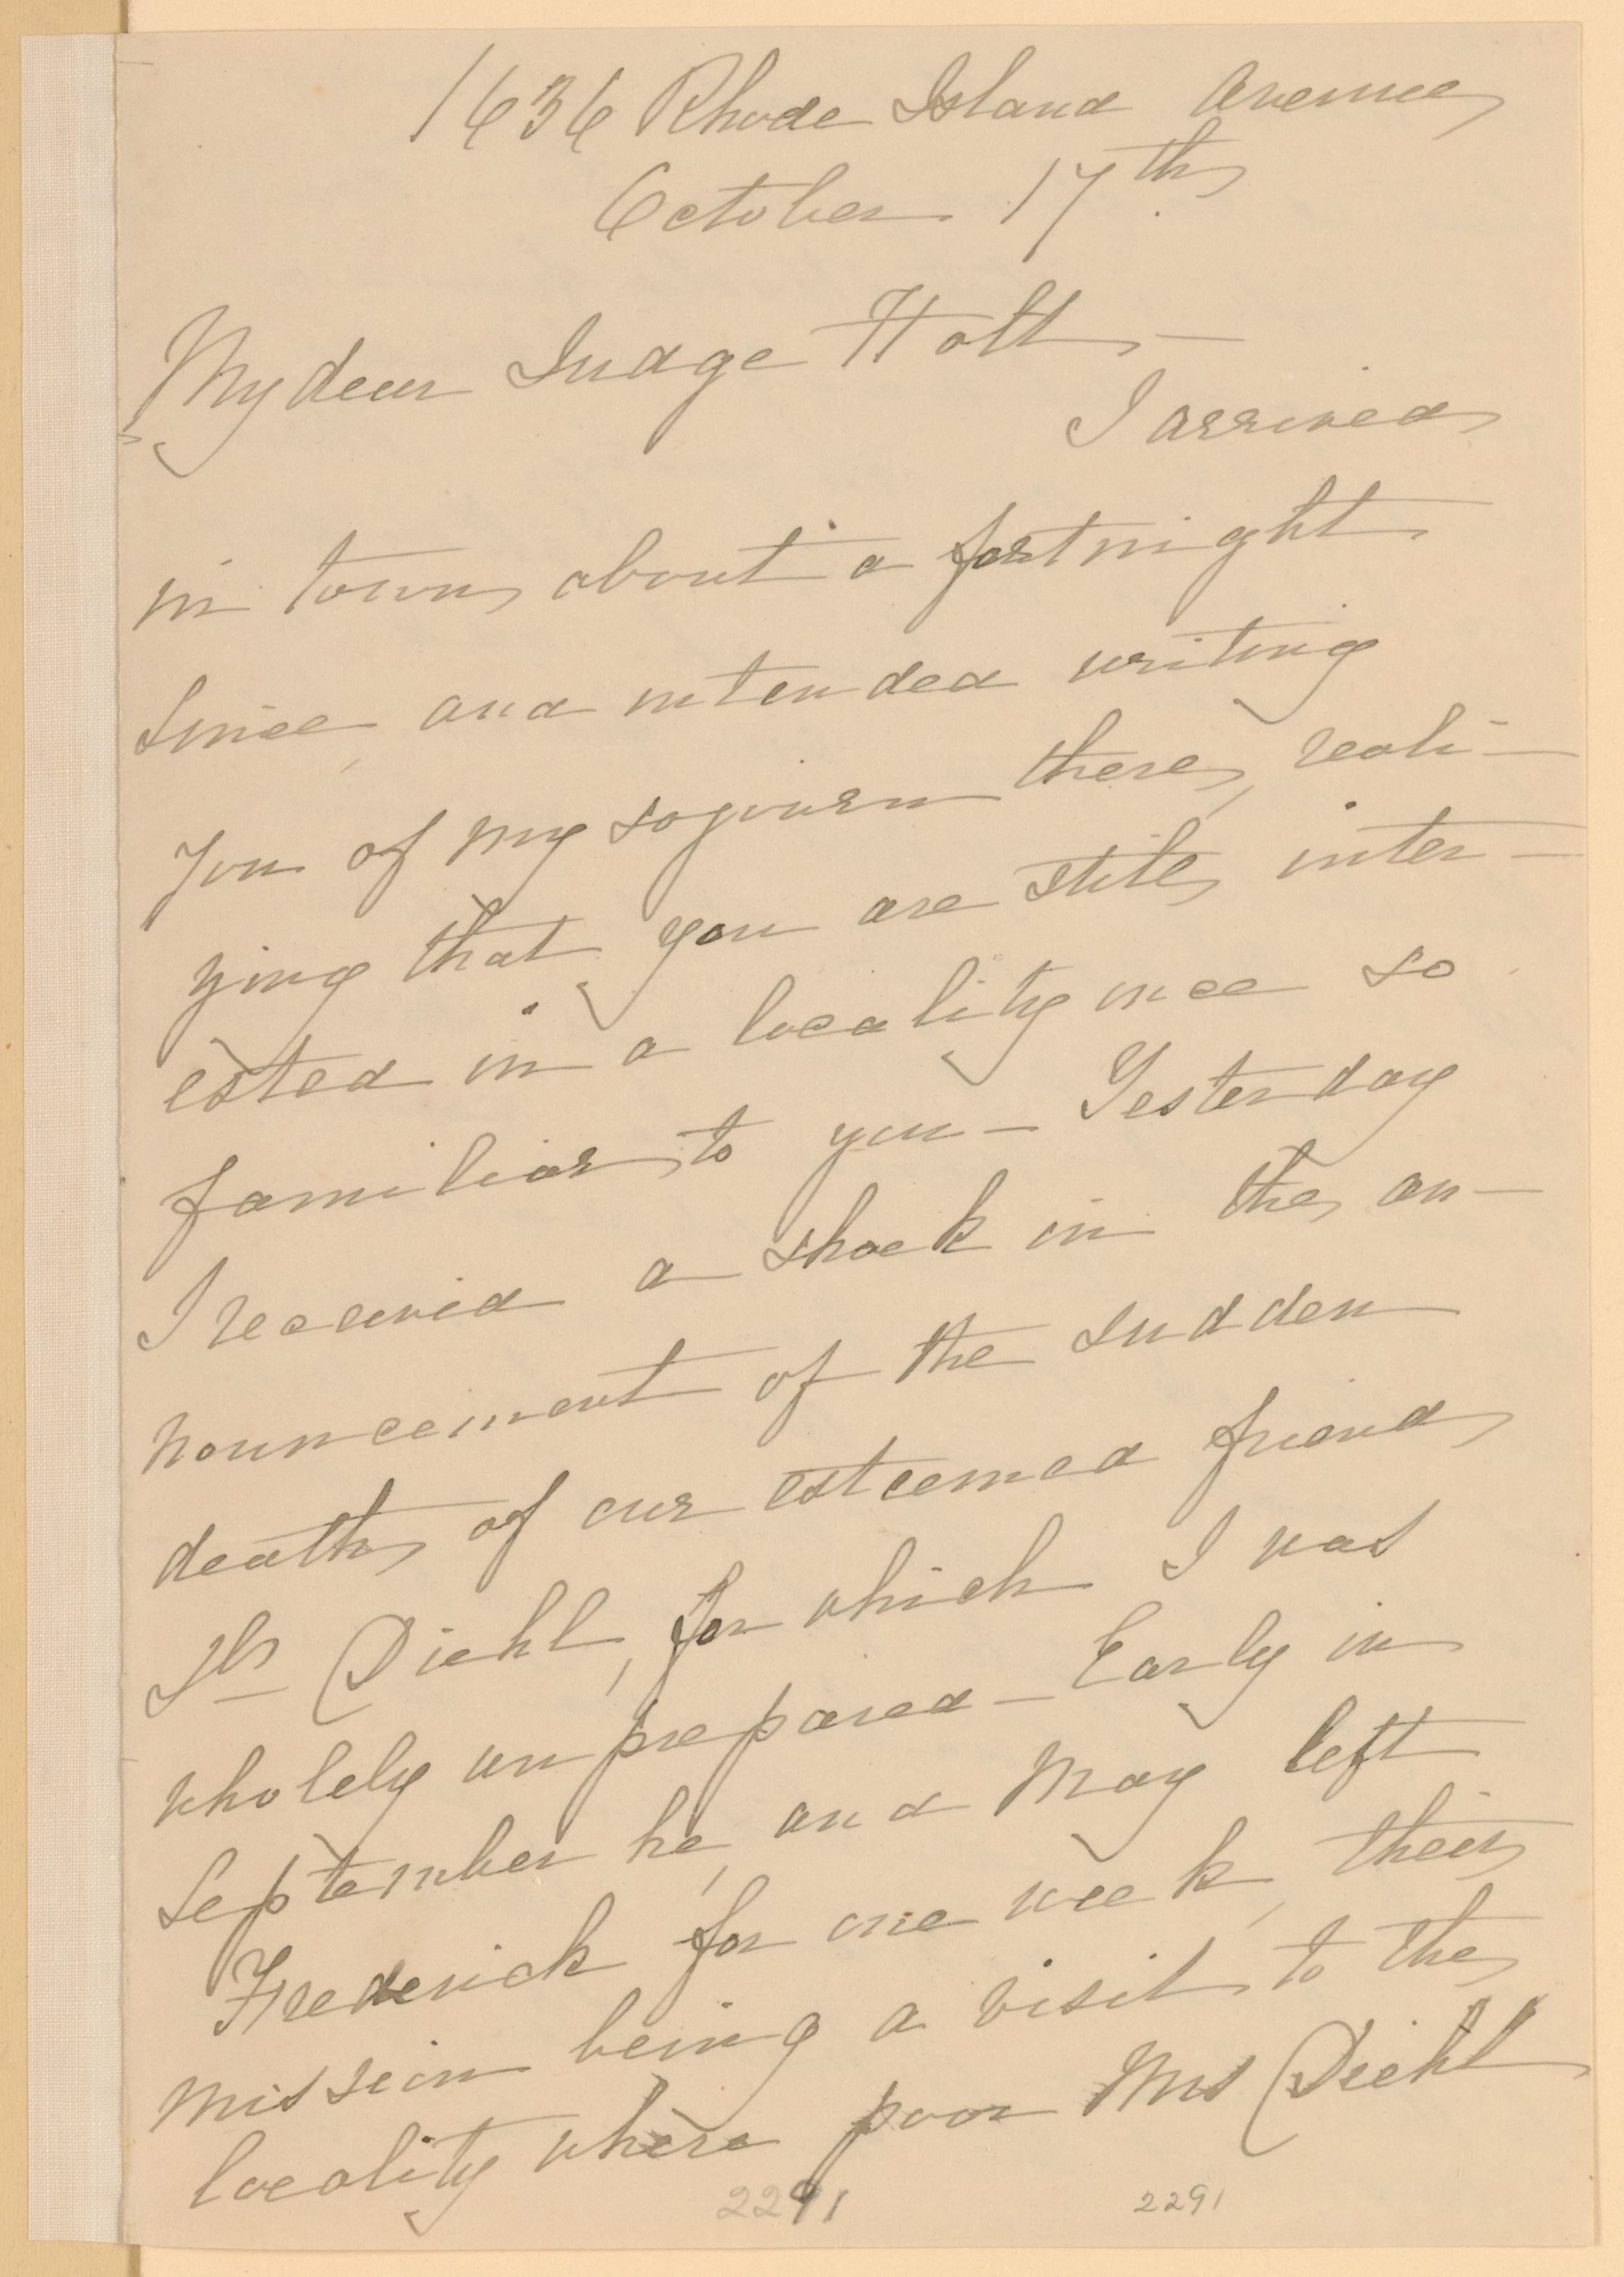 1636 Rhode Island Avenue
October 17th
My dear Judge Holt —
I arrived
in town about a fortnight
since, and intended writing
you of my sojourn there, reali-
zing that you are still inter-
ested in a locality once so
familiar to you — Yesterday
I received a shock in the an-
nouncement of the sudden
death of our esteemed friend
Dr Diehl, for which I was
wholely unprepared — Early in
September he, and May left
Frederick for one week, their
mission being a visit to the
locality where poor Mrs Diehl
2291 2291